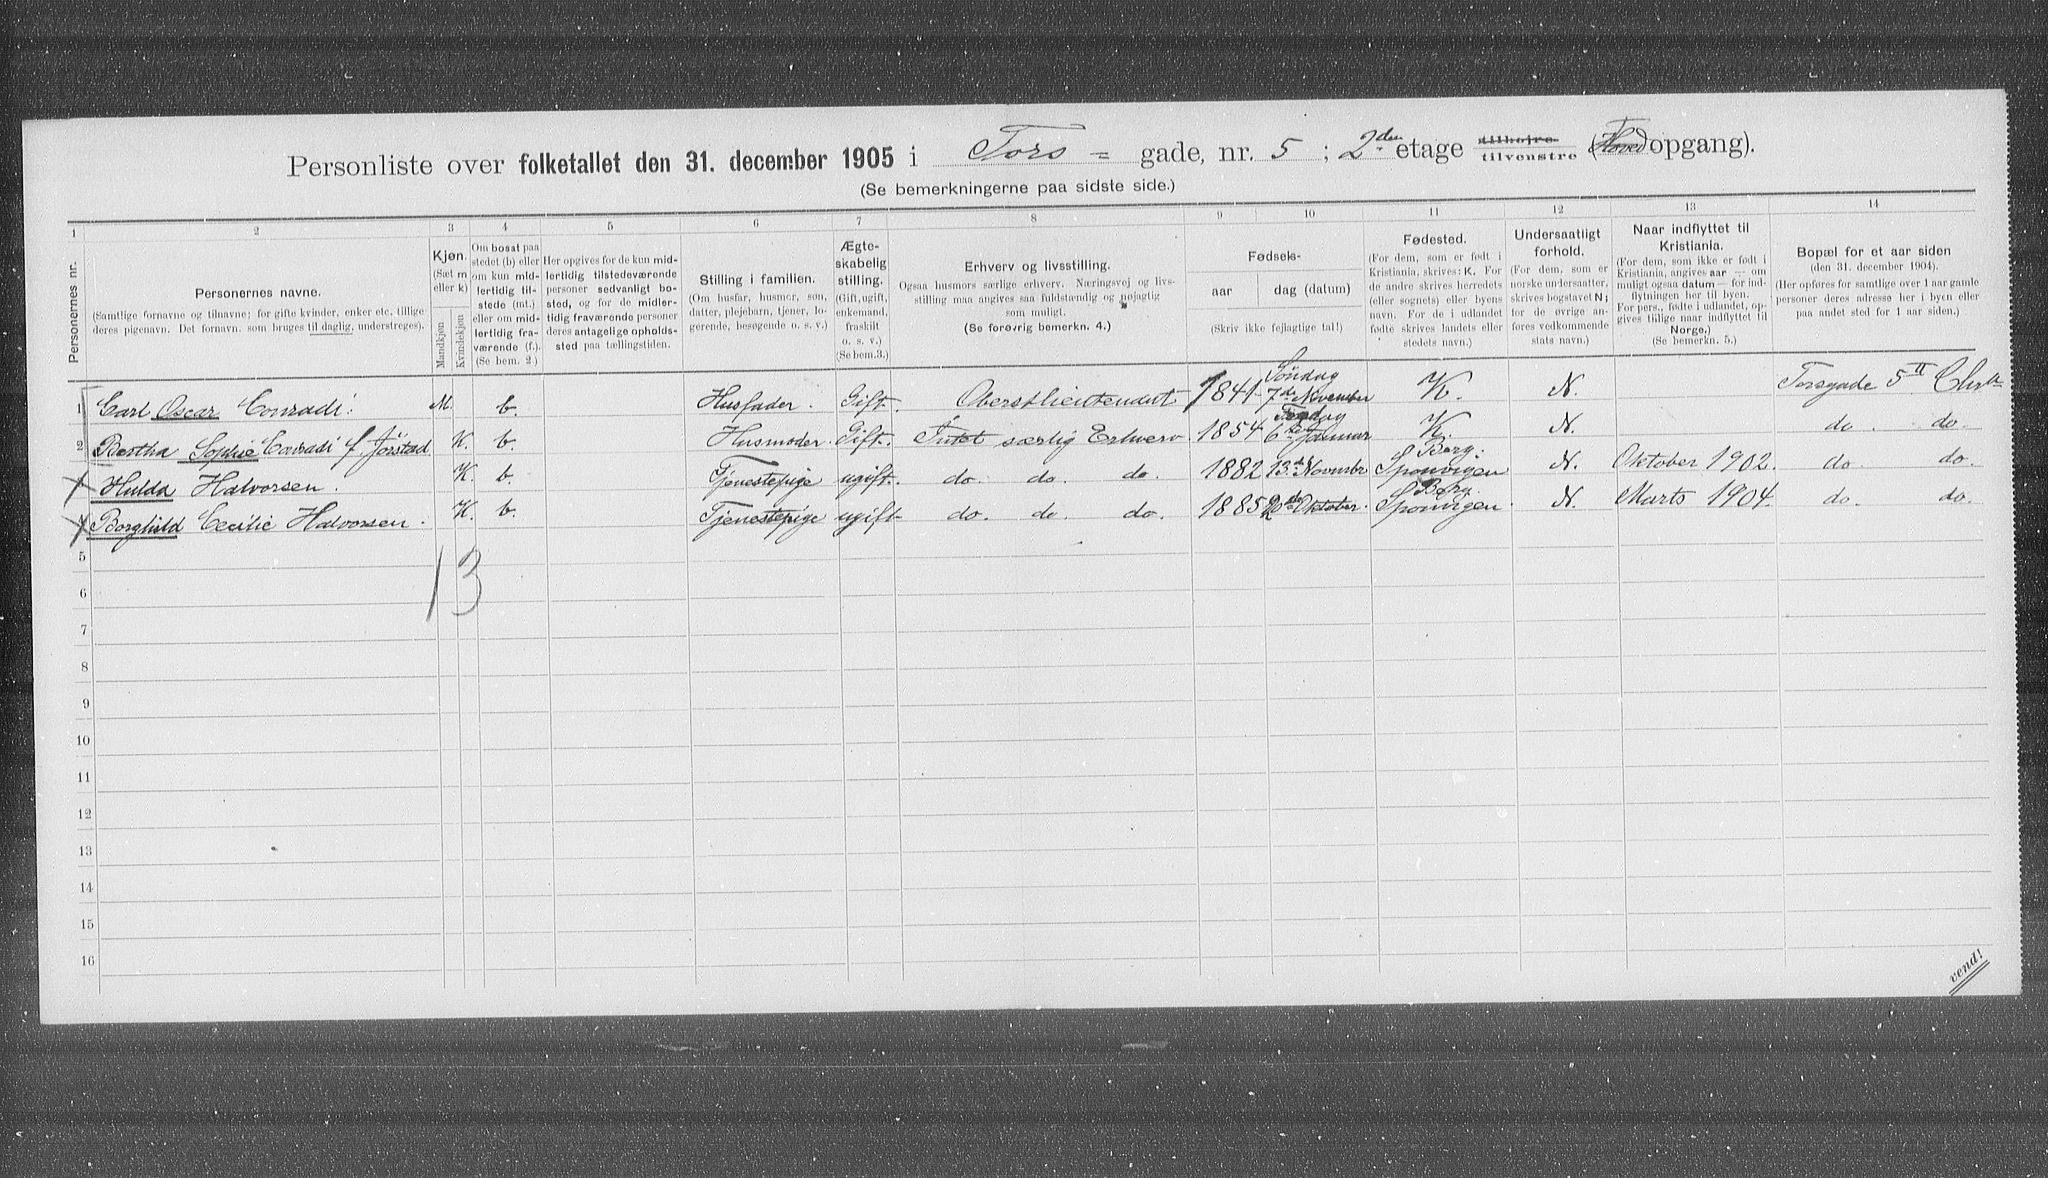 Personliste over folketallet den 31. december 1905 i Tors = gade, nr. 5 ; 2den etage tilhøjre tilvenstre (Hovedopgang).
(Se bemerkningerne paa sidste side.)
1 2 3 4 5 6 7 8 9 10 11 12 13 14
Personernes nr.
Personernes navne.
(Samtlige fornavne og tilnavne; for gifte kvinder, enker etc. tillige
deres pigenavn. Det fornavn. som bruges til daglig, understreges).
Kjøn.
(Sæt m
eller k)
Mandkjøn
Kvindekjøn
Om bosat paa
stedet (b) eller
om kun mid-
lertidig til-
stede (mt.)
eller om mid-
lertidig fra-
værende (f.).
(Se bem. 2.)
Her opgives for de kun mid-
lertidig tilstedeværende
personer sedvanligt bo-
sted, og for de midler-
tidig fraværende personer
deres antagelige opholds-
sted paa tællingstiden.
Stilling i familien.
(Om husfar, husmor, søn,
datter, plejebarn, tjener, lo-
gerende, besøgende o. s. v.)
Ægte-
skabelig
stilling.
(Gift, ugift,
enkemand,
fraskilt
o. s. v.)
(Se bem.3.)
Erhverv og livsstilling.
Ogsaa husmors særlige erhverv. Næringsvej og livs-
stilling maa angives saa fuldstændig og nøjagtig
som muligt.
(Se forøvrig bemerkn. 4.)
Fødsels-
aar dag (datum)
(Skriv ikke fejlagtige tal!)
Fødested.
(For dem, som er født i
Kristiania, skrives: K. For
de andre skrives herredets
(eller sognets) eller byens
navn. For de i udlandet
fødte skrives landets eller
stedets navn.)
Undersaatligt
forhold.
(For dem, som er
norske undersaatter,
skrives bogstavet N;
for de øvrige an-
føres vedkommende
stats navn.)
Naar indflyttet til
Kristiania.
(For dem, som ikke er født i
Kristiania, angives aar — om
muligt ogsaa datum — for ind-
flytningen her til byen.
For pers., fødte i udlandet, op-
gives tillige naar indflyttet til
Norge.)
(Se bemerkn. 5.)
Bopæl for et aar siden
(den 31. december 1904).
(Her opføres for samtlige over 1 aar gamle
personer deres adresse her i byen eller
paa andet sted for 1 aar siden.)
1 Carl Oscar Conradi. M. b. Husfader. Gift. Oberstlieutenant 1841 Søndag 7de November K. N. Torsgade 5 II Chra
2 Bertha Sophie Conradi f. Jörstad K. b. Husmoder. Gift. Intet særlig Erhverv 1854 6te Januar K. N. do. do.
Hulda Halvorsen. K. b. Tjenestepige ugift. do. do. do. 1882 13de November Berg: Sponvigen N. Oktober 1902. do. do.
Borghild Cecilie Halvorsen. K. b. Tjenestepige ugift do. do. do. 1885 Oktober. Berg. Sponvigen N. Marts 1904. do. do.
1 3
5
6
7
8
9
10
11
12
13
14
15
16
vend!